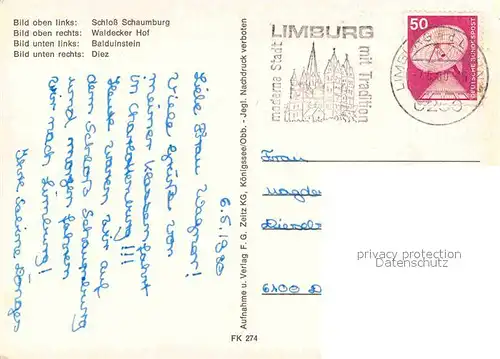 Bild oben links: Schloß Schaumburg
Bild oben rechts: Waldecker Hof
Bild unten links: Balduinstein
Bild unten rechts: Diez
LIMBURG
moderne Stadt
mit Tradition
50
DEUTSCHE BUNDESPOST
LIMBURG
6250
6.5.1980
Liebe Frau Wagner!
Viele Grüße von
meiner Klassenfahrt
in Charlottenburg!!!
Heute waren wir auf
dem Schloß Schaumburg
und morgen fahren
wir nach Limburg!
Ihre Sabine
Aufnahme u. Verlag F. G. Zeitz KG, Königssee/Obb. - Jegl. Nachdruck verboten
Frau
Magda
6100 D
privacy protection
Datenschutz
FK 274